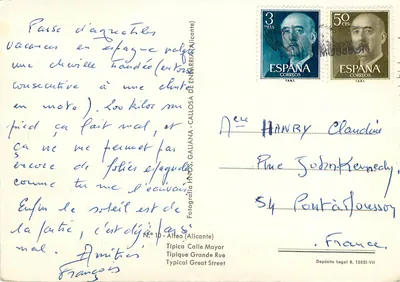 Passe d'agréables
vacances en espagne malgré
une cheville bandée (entorse
consecutive à une chute
en moto). 200 kilos sur un
pied ça fait mal, et
ça ne me permet pas
encore de folies espagnoles
comme tu me l'écrivais.
Enfin le soleil est de
la partie, c'est déjà pas
mal. Amitiés
François
Fotografía HNOS. GALIANA - CALLOSA DE ENSARRIA (Alicante)
N.º 10 - Altea (Alicante)
Típica Calle Mayor
Tipique Grande Rue
Typical Great Street
3
PTAS
ESPAÑA
CORREOS
50
CTS
ESPAÑA
CORREOS
HANRY Claudine
Rue John Kennedy
54 Pont à Mousson
France
Depósito Legal B.